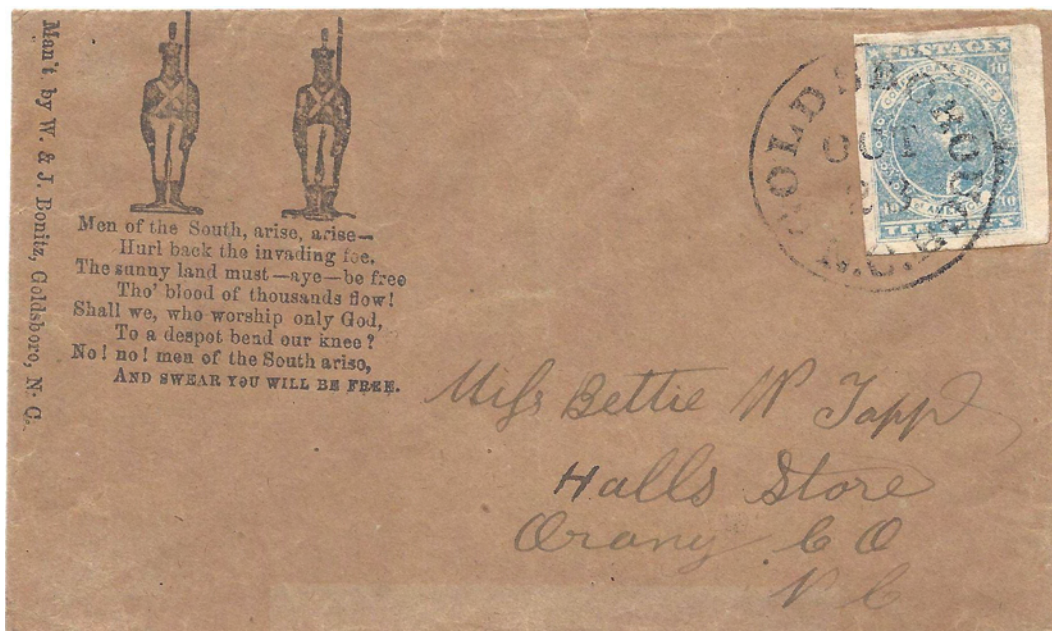 Man't by W. & J. Bonitz, Goldsboro, N. C.
Men of the South, arise, arise—
Hurl back the invading foe.
The sunny land must—aye—be free
Tho' blood of thousands flow!
Shall we, who worship only God,
To a despot bend our knee?
No! no! men of the South arise,
AND SWEAR YOU WILL BE FREE.
GOLDSBOROUGH
N.C.
OCT
POSTAGE
10 10
CONFEDERATE STATES
OF AMERICA
10 10
TEN CENTS
Miss Bettie W Tapp
Halls Store
Orang CO
N C